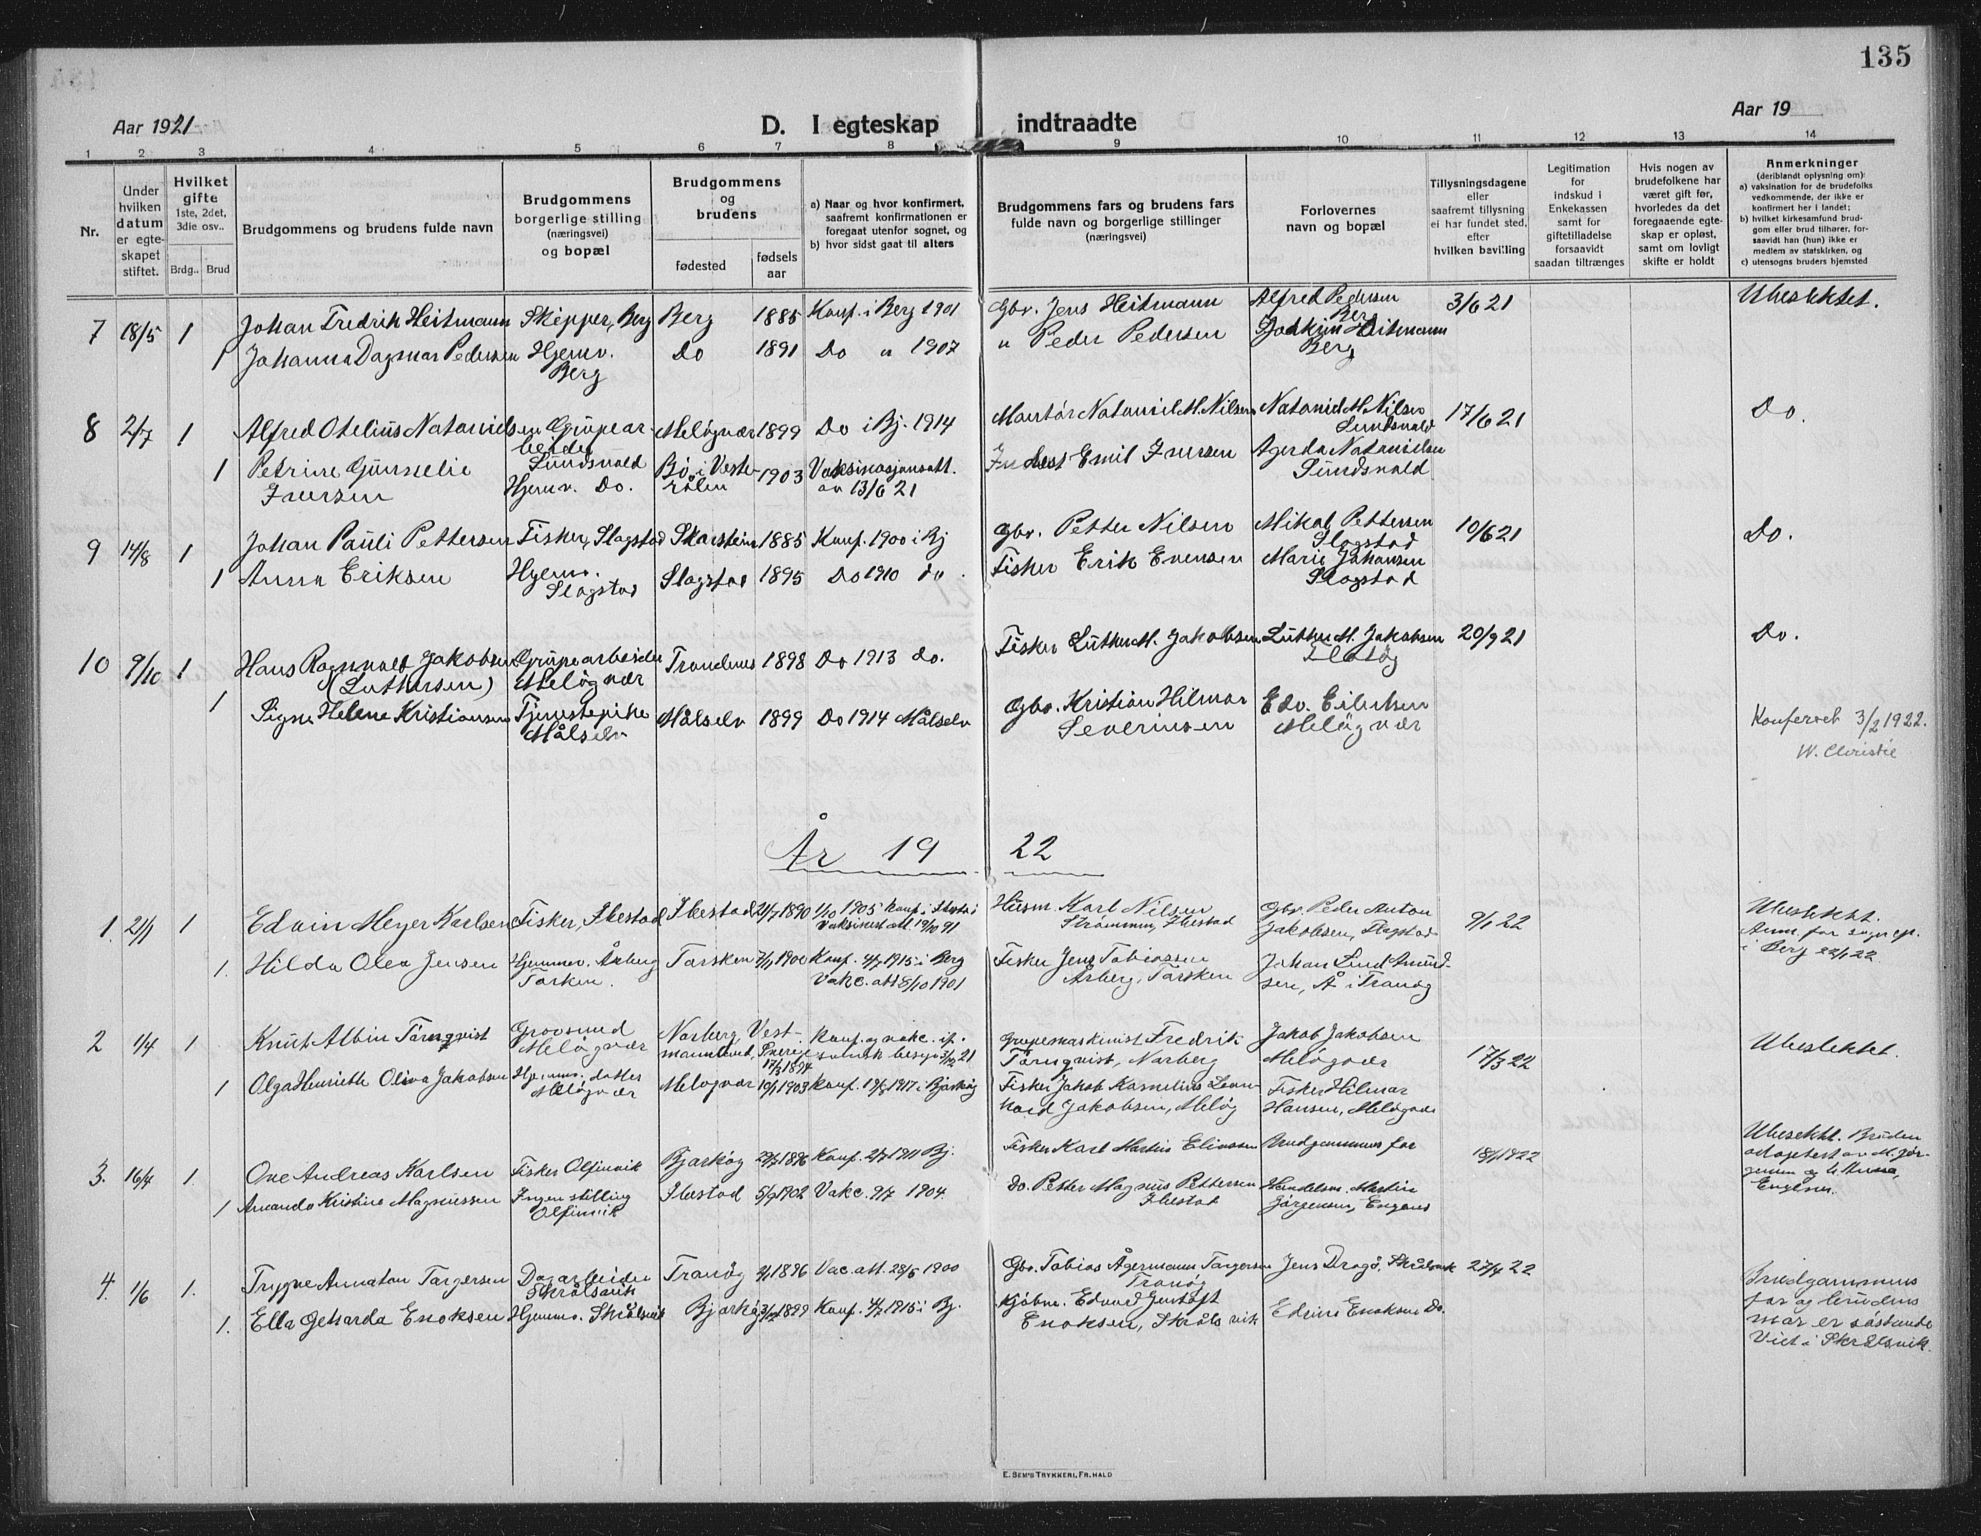 135
Aar 1921
D. I egteskap indtraadte
Aar 19
1 2 3 4 5 6 7 8 9 10 11 12 13 14
Nr.
Under hvilken datum er egte-skapet stiftet.
Hvilket gifte
1ste, 2det, 3die osv..
Brdg.. Brud
Brudgommens og brudens fulde navn
Brudgommens borgerlige stilling (næringsvei) og bopæl
Brudgommens og brudens
fødested
fødsels aar
a) Naar og hvor konfirmert, saafremt konfirmationen er foregaat utenfor sognet, og
b) hvor sidst gaat til alters
Brudgommens fars og brudens fars fulde navn og borgerlige stillinger (næringsvei)
Forlovernes navn og bopæl
Tillysningsdagene eller saafremt tillysning ei har fundet sted, efter hvilken bevilling
Legitimation for indskud i Enkekassen samt for giftetilladelse forsaavidt saadan tiltrænges
Hvis nogen av brudefolkene har været gift før, hvorledes da det foregaaende egte-skap er opløst, samt om lovligt skifte er holdt
Anmerkninger
(deriblandt oplysning om):
a) vaksination for de brudefolks vedkommende, der ikke er konfirmert her i landet;
b) hvilket kirkesamfund brud-gom eller brud tilhører, for-saavidt han (hun) ikke er medlem av statskirken, og
c) utensogns bruders hjemsted
7 18/5 1 Johan Fredrik Heitmann Skipper, Berg Berg 1885 Konf. i Berg 1901 Gbr. Jens Heitmann Alfred Pedersen Berg 3/6 21 Ubeslektet.
1 Johanna Dagmar Pedersen Hjemv. Berg Do 1891 Do " 1907 " Peder Pedersen Joakim Heitmann Berg
8 2/7 1 Alfred Otelius Natanielsen Grubearbeider Sundsvold Meløyvær 1899 Do i Bj. 1914 Nataniel M. Nilsen Nataniel M. Nilsen Sundsvold 17/6 21 Do.
1 Petrine Gunnelie Iversen Hjemv. Do. Bø i Vesterålen 1903 Vaksinasjonsatt. av 13/6 21 Emil Iversen Agerda Natanielsen Sundsvold
9 14/8 1 Johan Pauli Pettersen Fisker, Slagstad Skarstein 1885 Konf. 1900 i Bj Gbr. Petter Nilsen Mikal Pettersen Slagstad 10/6 21 Do.
1 Anna Eriksen Hjemv. Slagstad Slagstad 1895 Do 1910 do Fisker Erik Evensen Marie Johansen Slagstad
10 9/10 1 Hans Ragnvald Jakobsen (Luthersen) Grubearbeider Meløyvær Trondenes 1898 Do 1913 do. Fisker Luther M. Jakobsen Luther M. Jakobsen 20/9 21 Do.
1 Signe Helene Kristiansen Tjenestepike Målselv Målselv 1899 Do 1914 Målselv Gbr. Kristian Hilmar Severinsen Edv. Meløyvær
Konferert 3/2 1922.
W. Christie
År 1922
1. 1 Edvin Meyer Karlsen Fisker, Ibestad Ibestad 1890 1/10 1905 konf. i Ibestad Vaksinert att. 19/10 91 Husm. Karl Nilsen Ibestad Gbr. Peder Anton Jakobsen, Slagstad 9/1 22 Ubeslektet.
1. Hilda Olea Jensen Hjemmev. Årberg Torsken Torsken 1900 Konf. 1915 i Berg Vakc. att. 8/10 1901 Fisker Jens Tobiassen Årberg, Torsken Johan Lind Amundsen, Å i Tranøy
2 1/4 1 Knut Albin Törnqvist Grovsmed Meløyvær Norberg Vestmannland, Sverige 17/3 1894 Konf. og vakc. Grubemaskinist Fredrik Törnqvist, Norberg Jakob Jakobsen Meløyvær 17/3 22 Ubeslektet.
1 Olga Henriette Oliva Jakobsen Hjemmev. datter Meløyvær Meløyvær 1903 Konf. 1917 i Bjarkøy Fisker Jakob Kornelius Leonhard Jakobsen, Meløy Fisker Hilmar Hansen, Meløyvær
3. 16/4 1. Ove Andreas Karlsen Fisker Bjarkøy 1896 Konf. 1911 Bj. Fisker Karl Martin Eliassen Brudgommens far 1922
1 Amanda Kristine Magnussen Ingen stilling Ibestad 1902 Vakc. 9/7 1904. Do. Petter Magnus Pettersen Ibestad Handelsm. Martin Jørgensen, Engenes
Ubeslekt. Bruden adoptert av M. Jørgensen
4. 1/6 1. Trygve Annaton Torgersen Dagarbeider Skrolsvik Tranøy 1896 Vac. att. 28/5 1900 Gbr. Tobias Ågermann Torgersen Tranøy Jens Dragø, Skrolsvik 27/4 22
1. Ella Getharda Enoksen Hjemmev. Skrolsvik Bjarkøy 1899 Konf. 1915 i Bj. Kjøbm. Edvard Enoksen, Skrolsvik Enoksen Do.
Brudgommens far og brudens mor er søskende Viet i Skrolsvik.
E. SEM'S TRYKKERI, FR.HALD